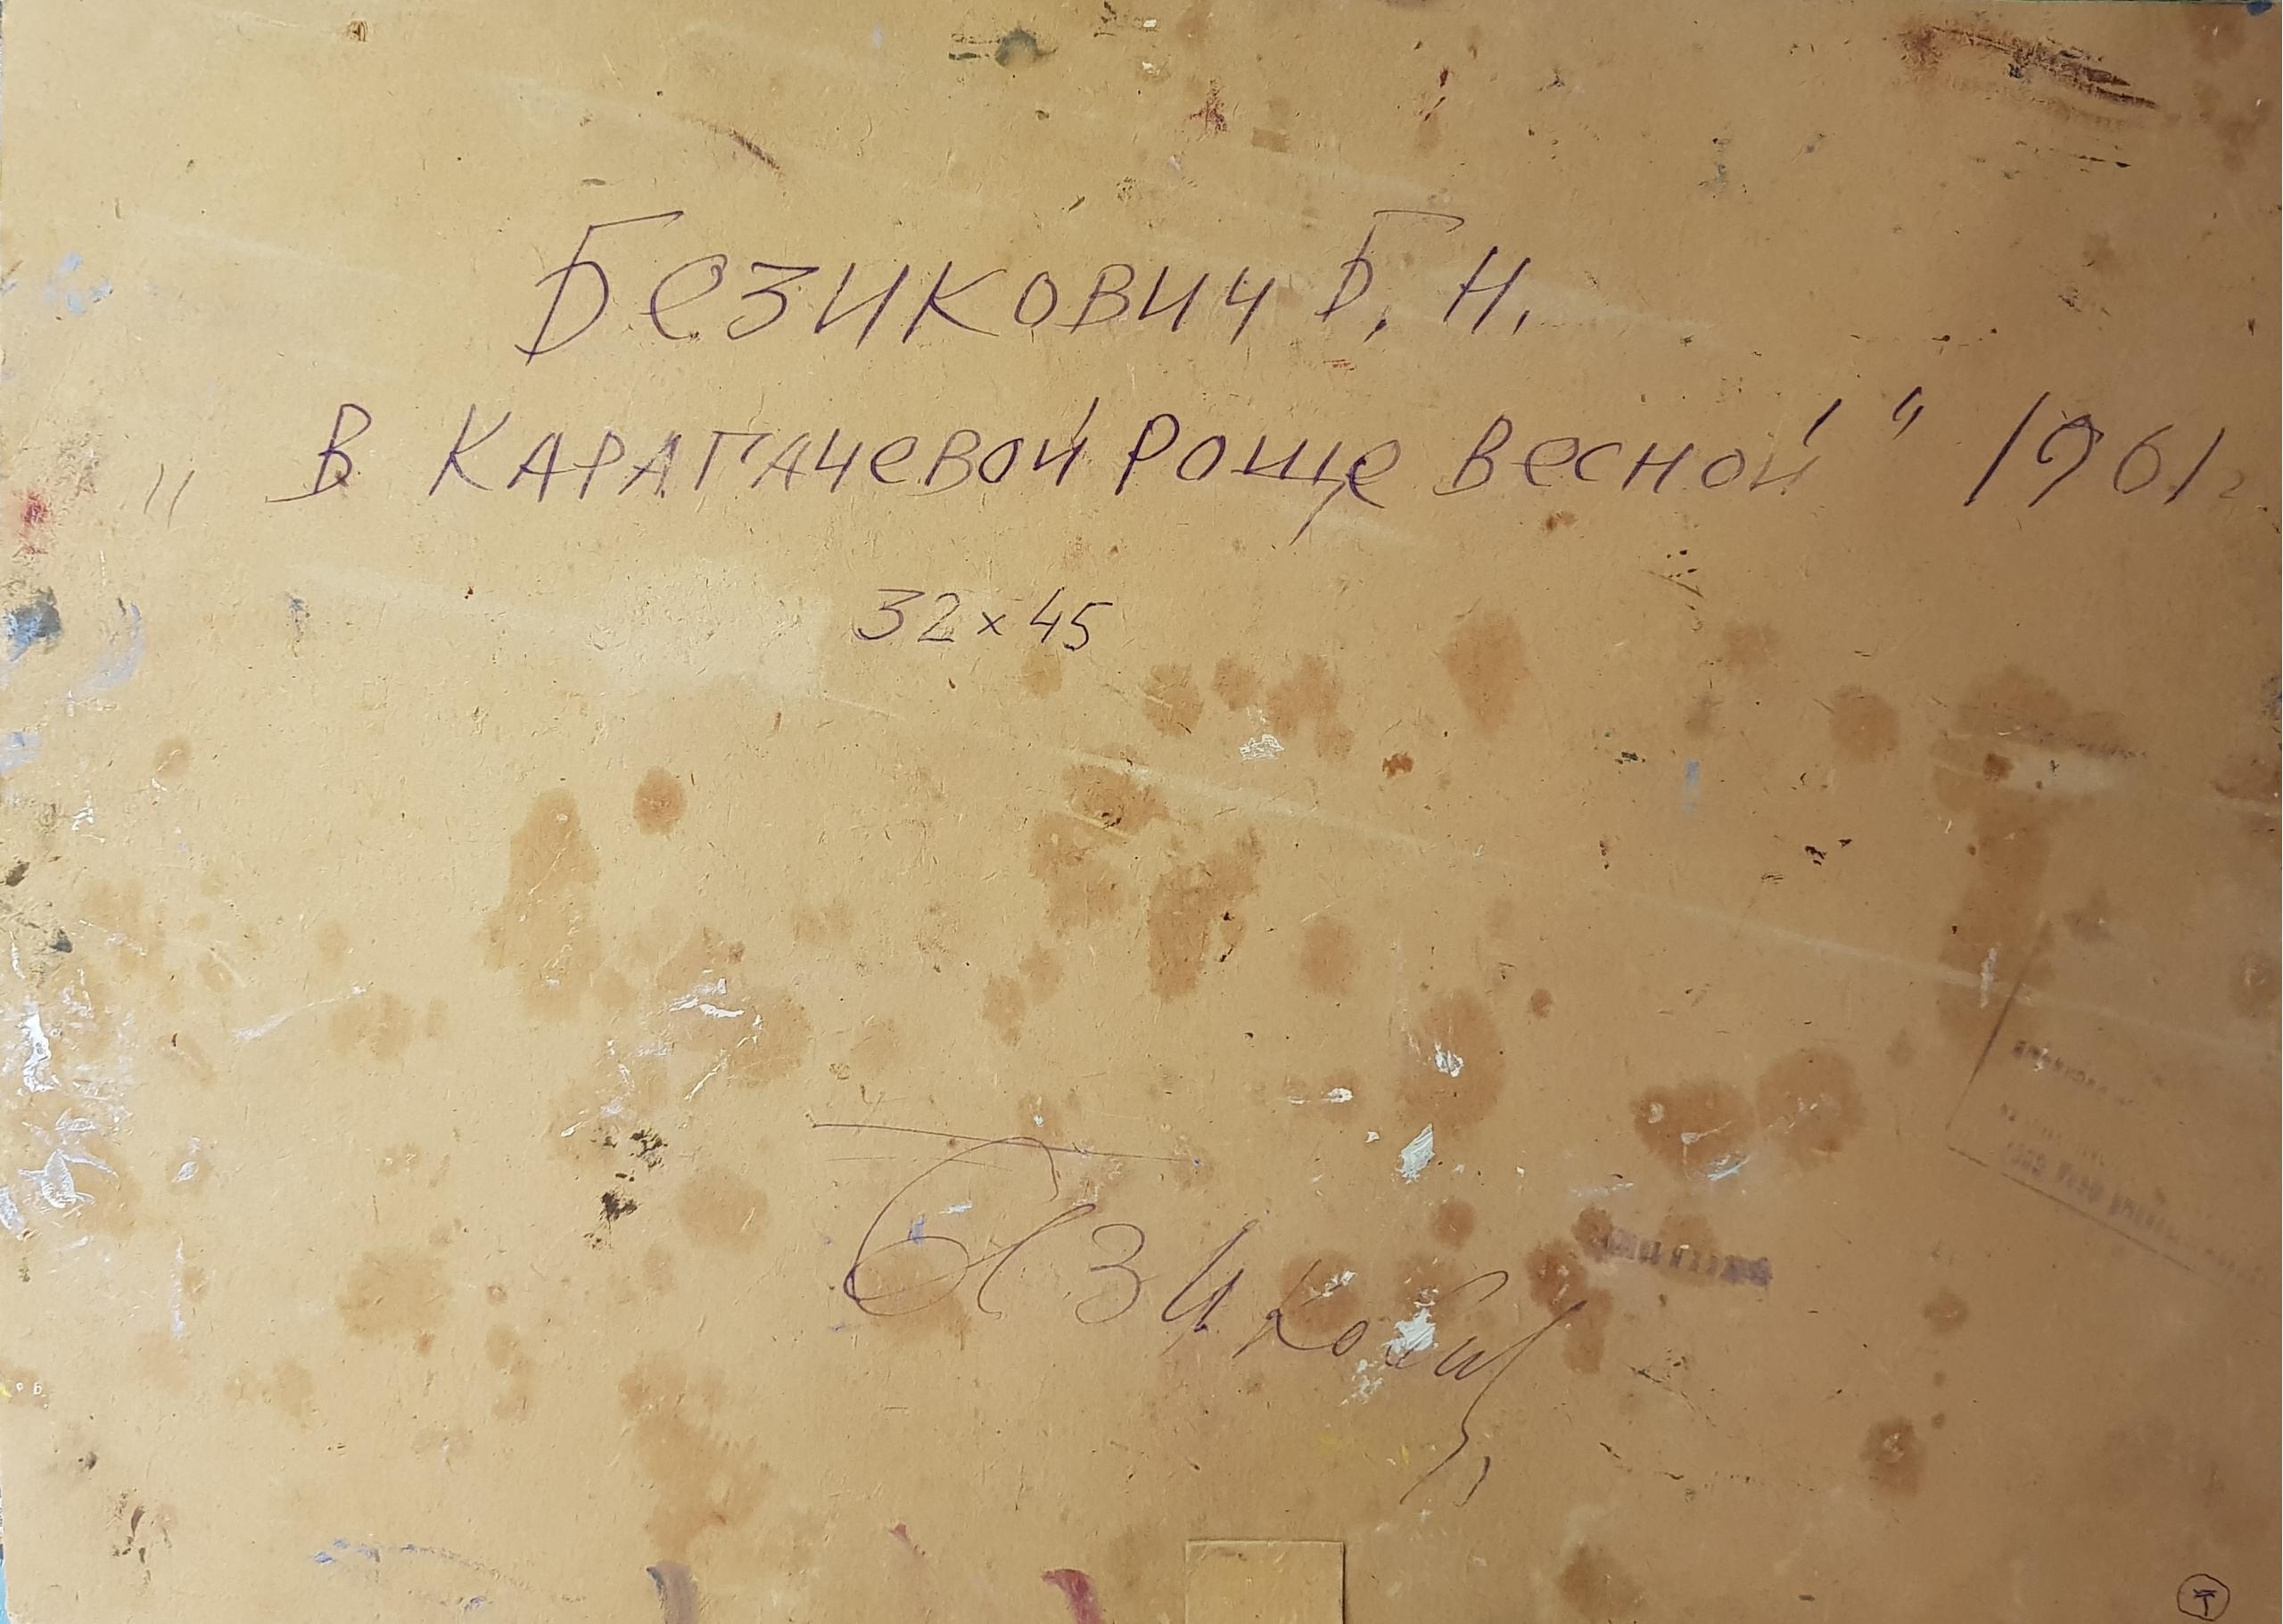 Безикович Б. Н.
„ В Карагачевой роще весной " 1961 г.
32 x 45
Безикович